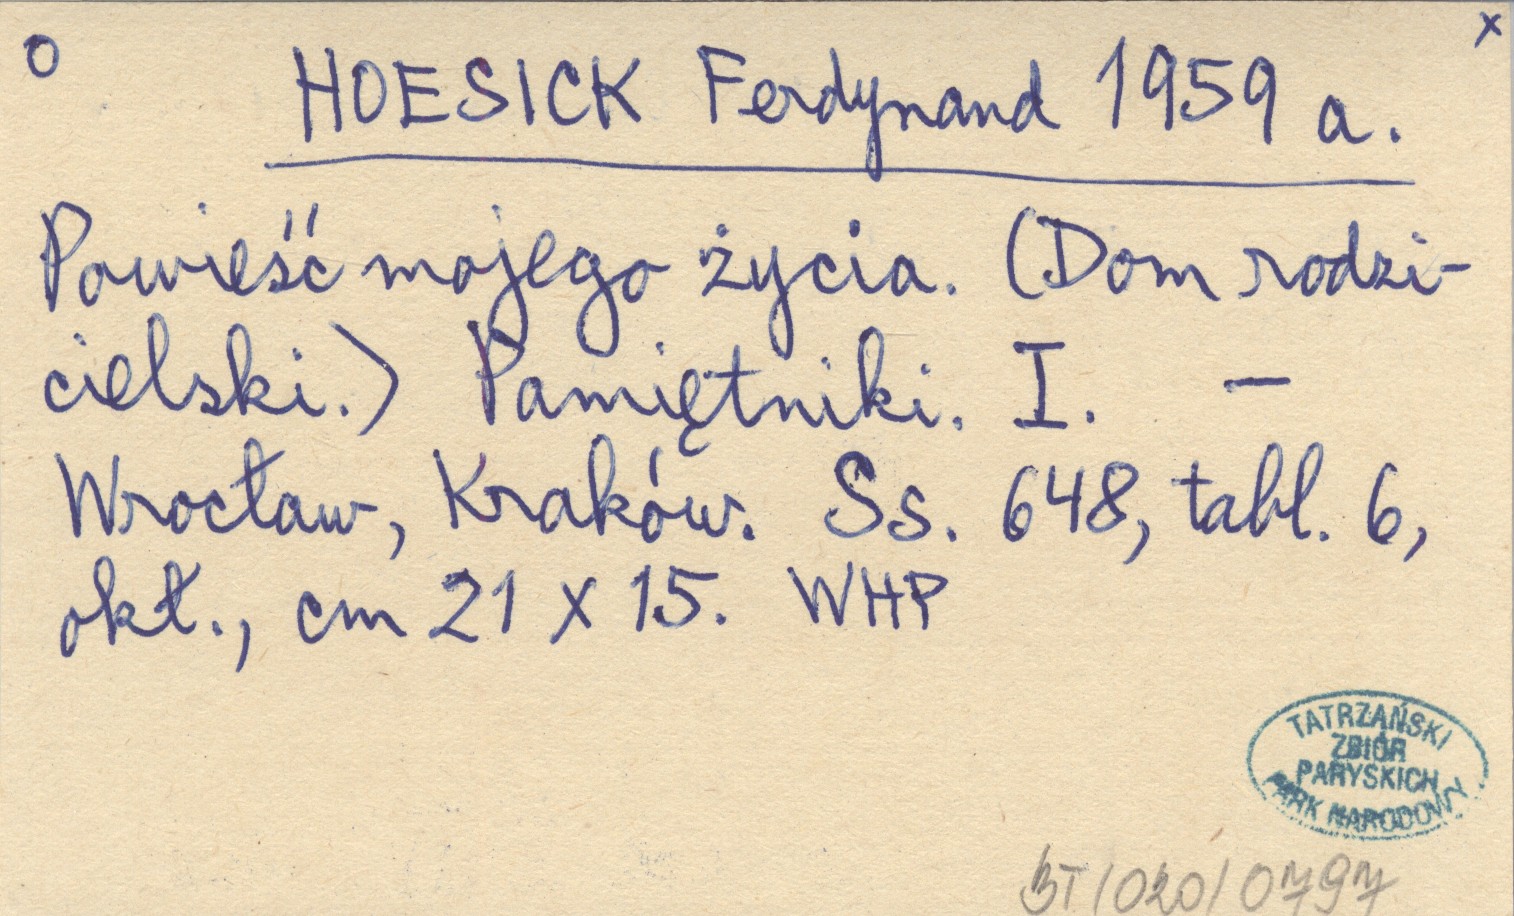 O x
HOESICK Ferdynand 1959 a.
Powieść mojego życia. (Dom rodzi-
cielski.) Pamiętniki. I. —
Wrocław, Kraków. Ss. 648, tabl. 6,
okł., cm 21 x 15. WHP
TATRZAŃSKI
ZBIÓR
PARYSKICH
PARK NARODOWY
BT/020/0797